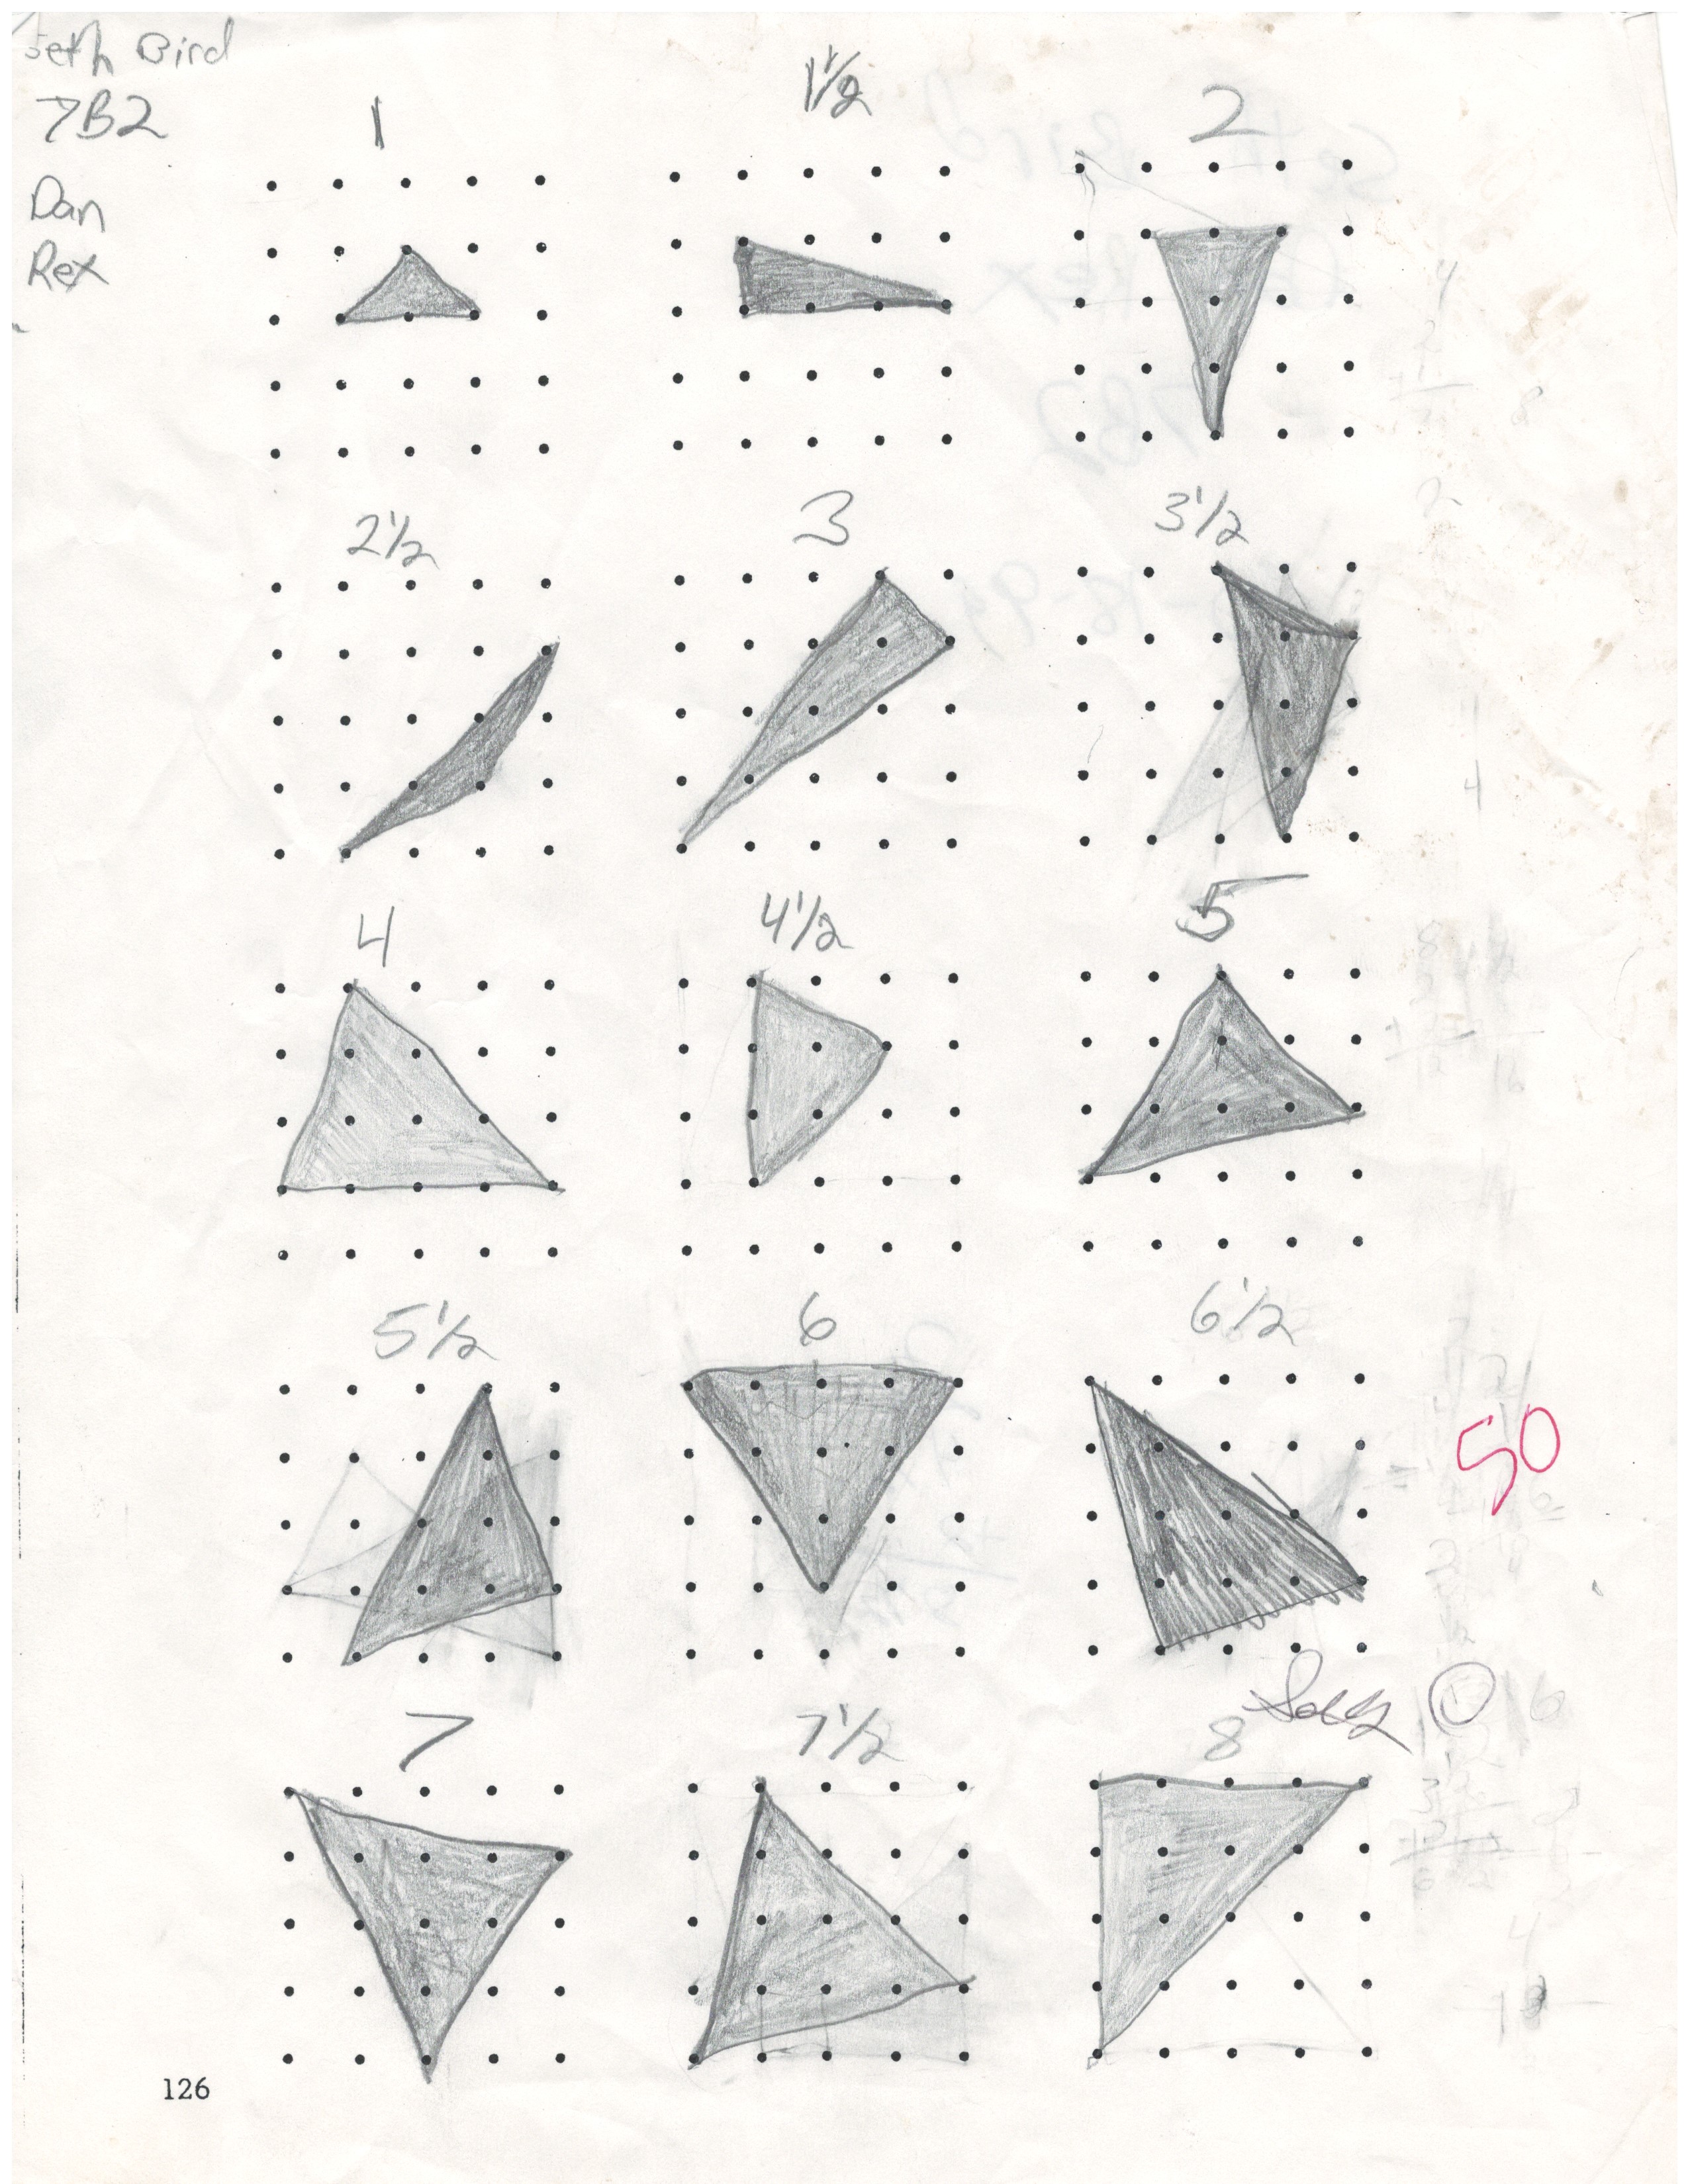 Seth Bird
7B2
Dan
Rex
1
1 1/2
2
2 1/2
3
3 1/2
4
4 1/2
5
5 1/2
6
6 1/2
50
7
7 1/2
8
126